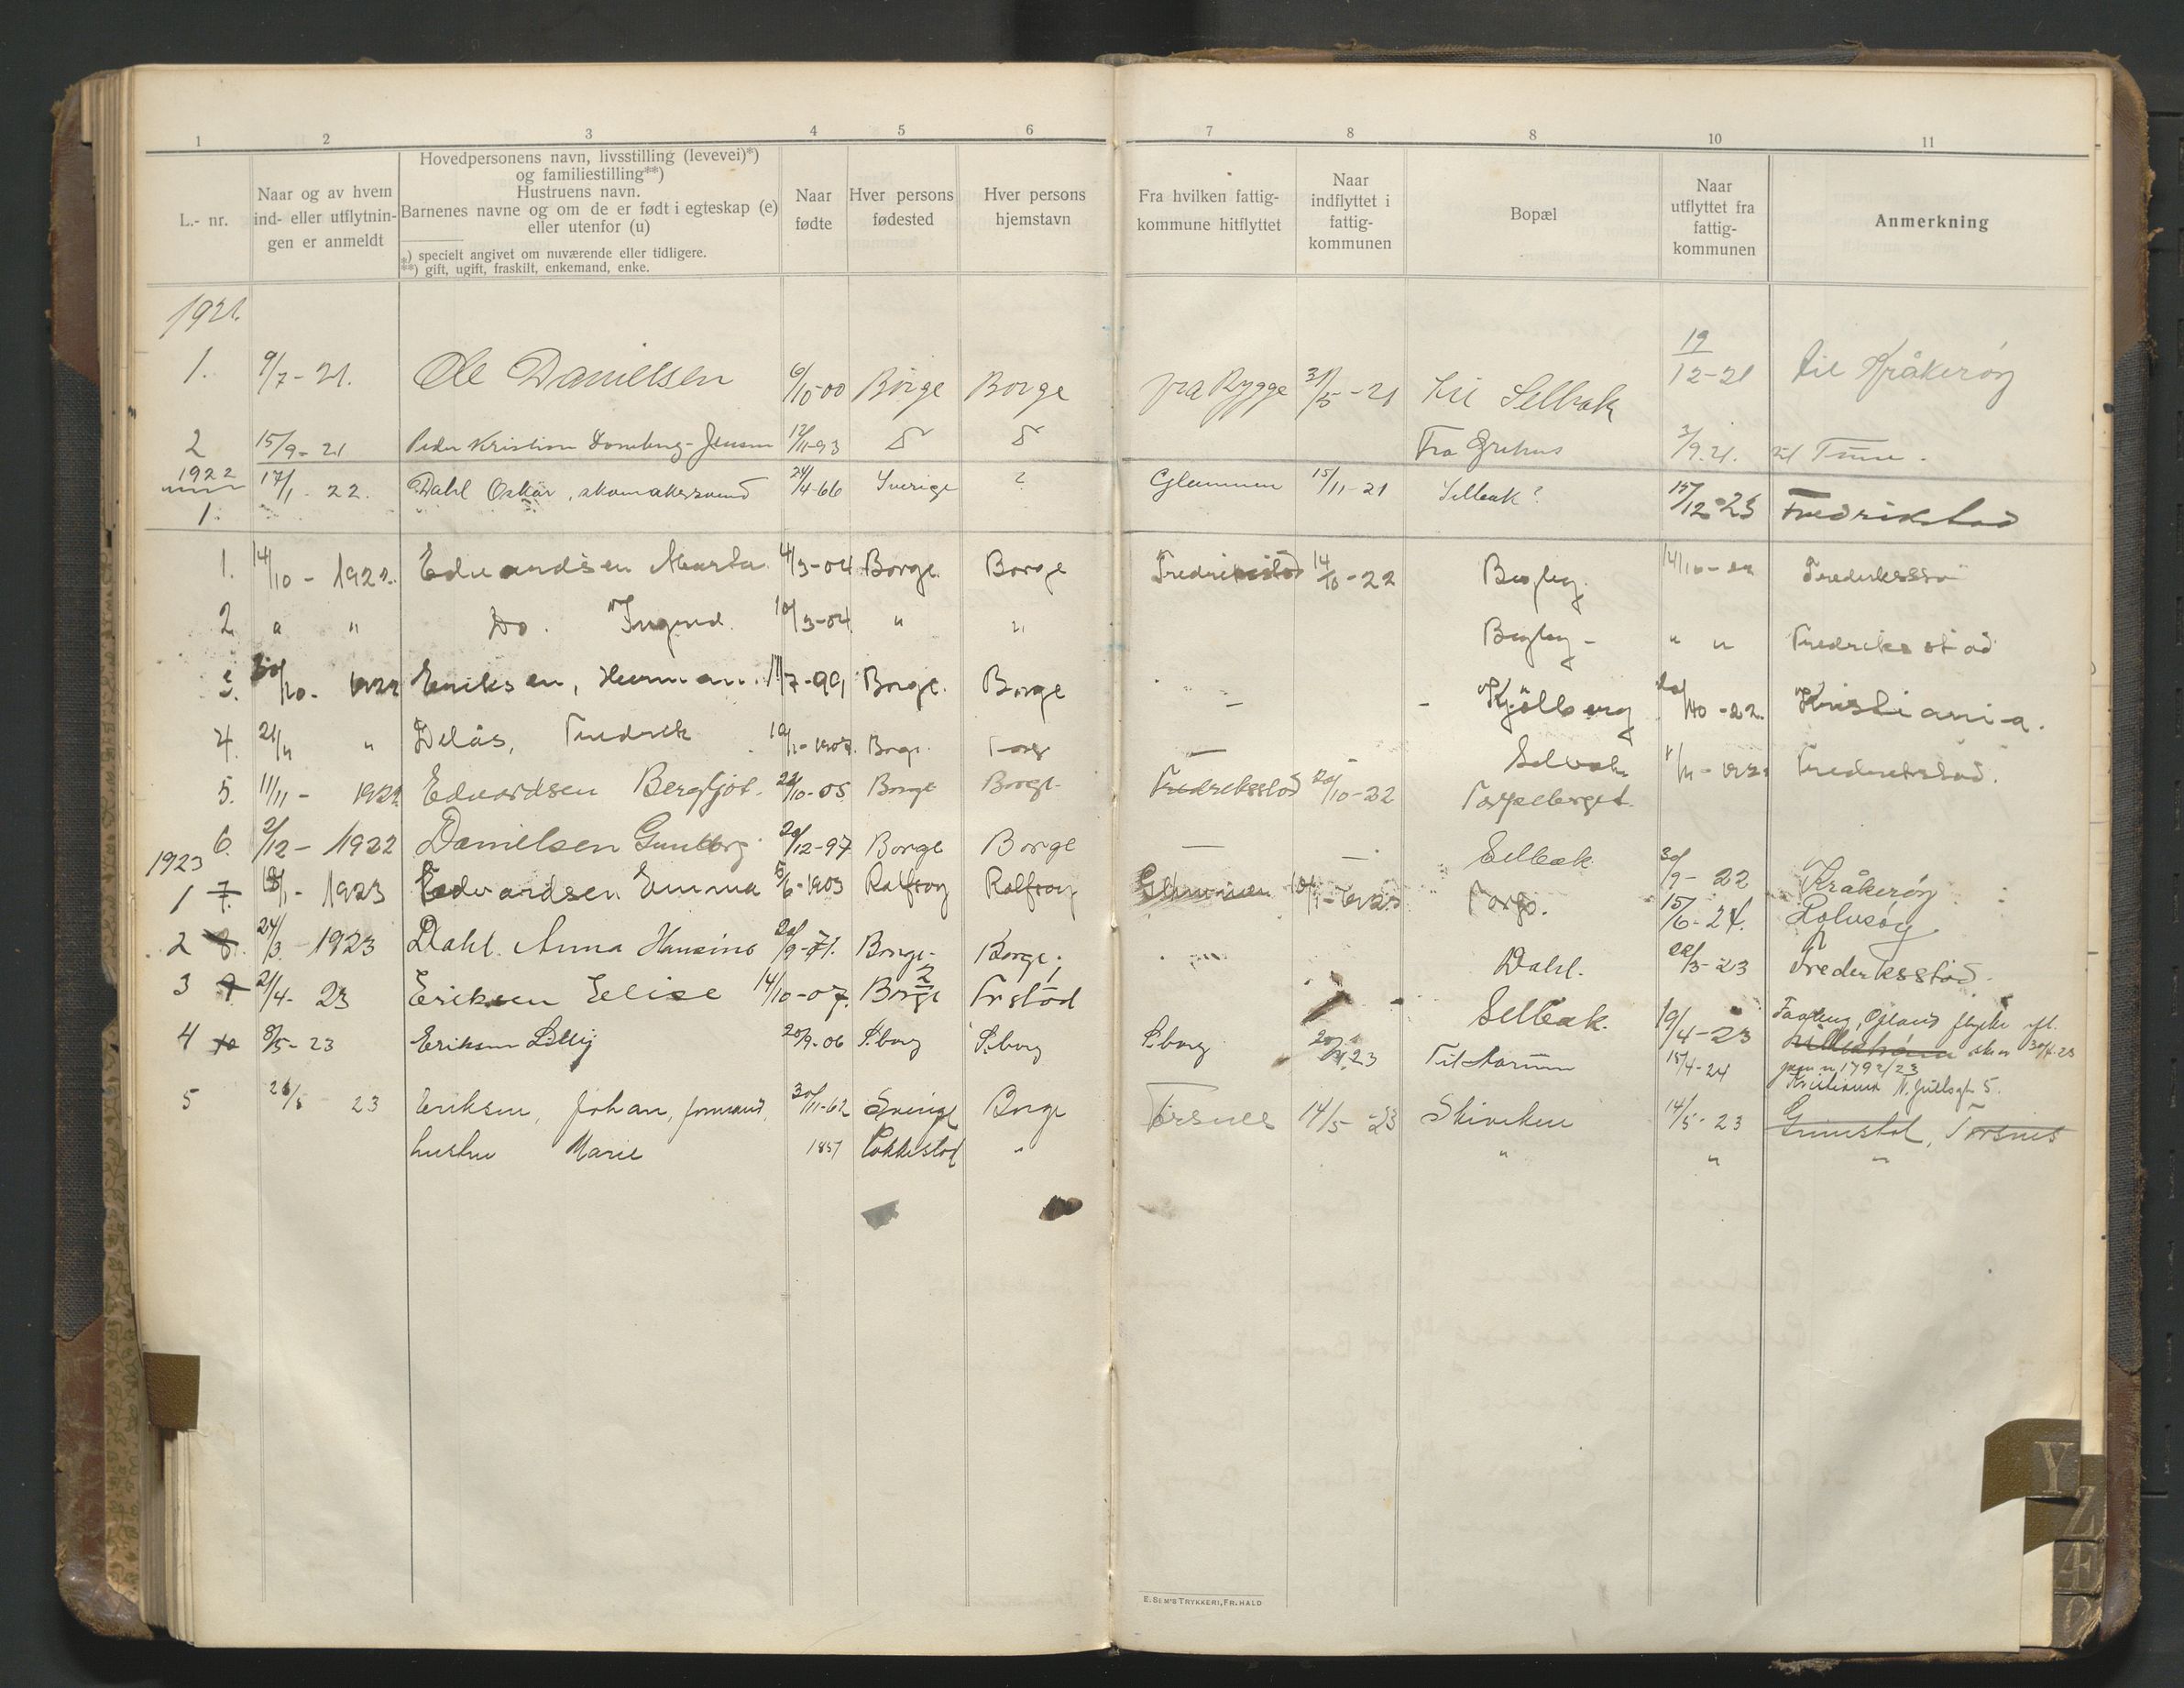 1 2 3 4 5 6 7 8 8 10 11
L.- nr.
Naar og av hvem
ind- eller utflytnin-
gen er anmeldt
Hovedpersonens navn, livsstilling (levevei)*)
og familiestilling**)
Hustruens navn.
Barnenes navne og om de er født i egteskap (e)
eller utenfor (u)
*) specielt angivet om nuværende eller tidligere.
**) gift, ugift, fraskilt, enkemand, enke.
Naar
fødte
Hver persons
fødested
Hver persons
hjemstavn
Fra hvilken fattig-
kommune hitflyttet
Naar
indflyttet i
fattig-
kommunen
Bopæl
Naar
utflyttet fra
fattig-
kommunen
Anmerkning
1921.
1. 9/7-21. Ole Danielsen 6/10-00 Borge Borge fra Rygge 31/5-21 til Selbak 19/12-21 til Kråkerøy
2 15/9-21 Peder Kristian -Jensen 12/11-93 Fra 2/9.21. til Tune.
1922
1. 17/1-22. Dahl Oskar, skomakersvend 24/4-66 Sverige ? Glemmen 15/11-21 Selbak? 15/12-23 Fredrikstad
1. 14/10-1922. Edvardsen Marta 4/3-04 Borge Borge Fredriksstad 14/10-22 Begby 14/10-22 Fredriksstad
2 " " Do. Ingrid 10/3-04 " " Begby- " " Fredriksstad
3. 20/10-1922 Eriksen, Herman. 11/7-99 Borge. Borge - - Kjölberg 20/10-22. Kristiania.
4. 21/11 " Delås, Fredrik Borge. Borge — Selbak Fredrikstad.
5. 11/11-1922 Edvardsen Bergljot. 22/10-05 Borge Borge Fredriksstad 20/10-22 Torpeberget.
6. 2/12-1922 Danielsen Gunborg 29/12-97 Borge Borge — — Selbak 30/9-22 Kråkerøy
1923
1 7. 18/1-1923 Edvardsen Emma 5/6-1903 Rolfsøy Rolfsøy Glemmen Torp. 15/6-24. Rolvsøy
2 8. 24/3-1923 Dahl. Anna Hansine 20/9-71. Borge- Borge. Dahl. 22/3-23 Frederksstad.
3 9 21/4-23 Eriksen Elise 14/10-07. Borge 2 Frstad Selbak. 19/4-23
4 10 8/5-23 Eriksen Lilly 20/9-06 S.borg S.borg S.borg 23 Til 15/4-24 1792/23
5 26/5 23 Eriksen, Johan, formand, 30/11-62 Sverige Borge Torsnes 14/5-23 Skiviken 14/5-23 Grimstad, Torsnes
hustru Marie 1857 " " " "
E. SEM'S TRYKKERI, FR. HALD
Y
Z
Æ
Ø